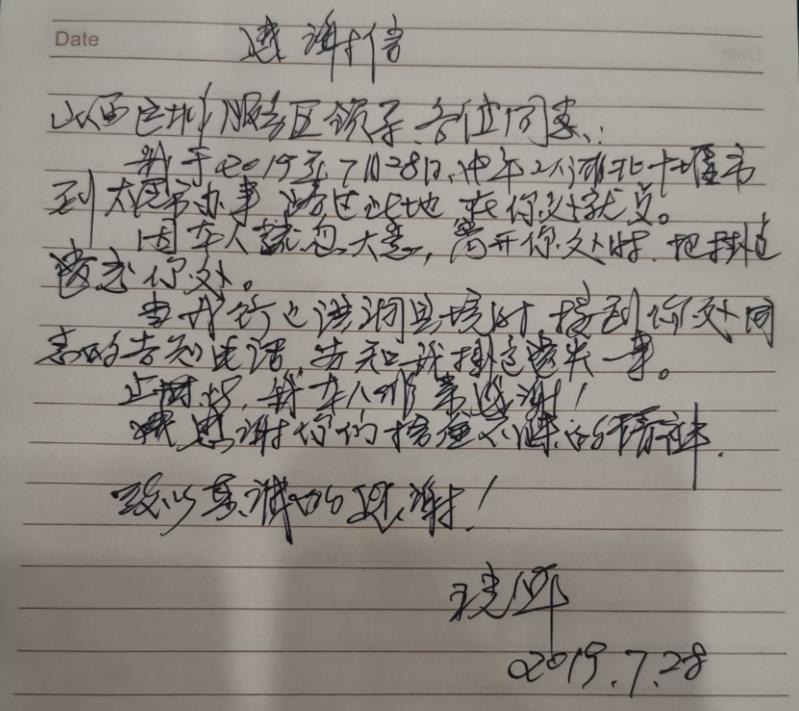 Date
感谢信
山西服务区领导、各位同志：
我于2019年7月28日中午从湖北十堰市
到太原市办事路过此地 在你处就点。
因本人疏忽大意，离开你处时，把挂包
遗忘你处。
当我行至洪洞县境时，接到你处同
志的告知电话，告知我挂包遗失一事。
此时此，我本人非常感谢！
感谢你们拾金不昧的精神.
致以真诚的感谢！
2019.7.28